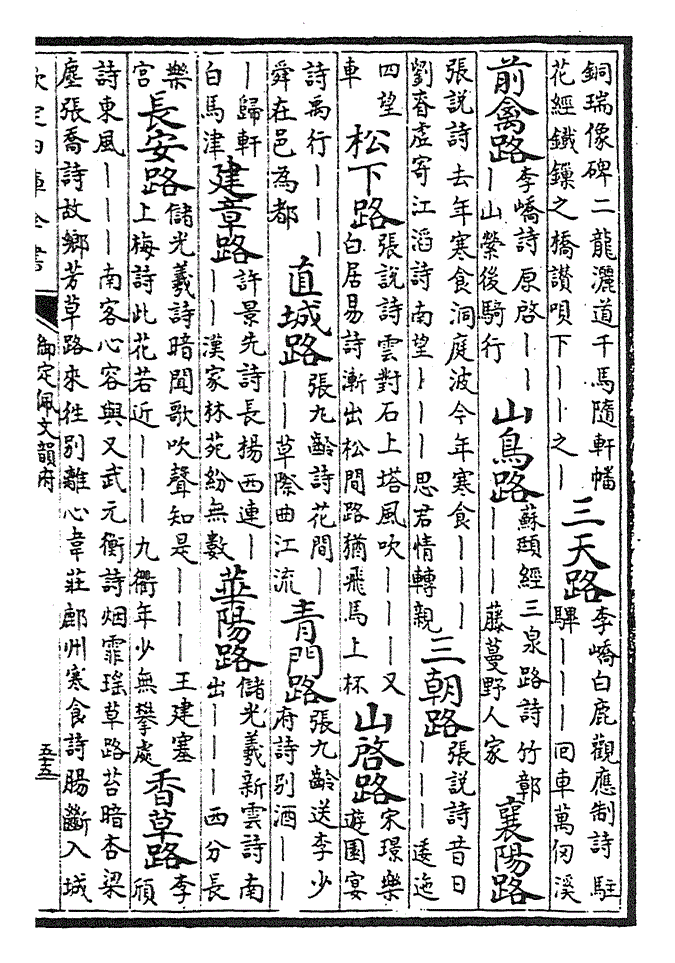 銅瑞像碑二龍灑道千馬隨軒幡
花經鐵鏁之橋讚唄下丨丨之丨
三天路
李嶠白鹿觀應制詩駐
驆丨丨丨囘車萬仞溪
前禽路
李嶠詩原啓丨丨
丨山縈後騎行
山鳥路
蘇頲經三泉路詩竹鄣
丨丨丨藤蔓野人家
襄陽路
張説詩去年寒食洞庭波今年寒食丨丨丨
劉眘虛寄江滔詩南望丨丨丨思君情轉親
三朝路
張説詩昔日
丨丨丨逶迤
四望
車
松下路
張説詩雲對石上塔風吹丨丨丨又
白居易詩漸出松間路猶飛馬上杯
山啓路
宋璟樂
遊園宴
詩禹行丨丨丨
舜在邑為都
直城路
張九齡詩花間丨
丨丨草際曲江流
青門路
張九齡送李少
府詩别酒丨丨
丨歸軒
白馬津
建章路
許景先詩長楊西連丨
丨丨漢家林苑紛無數
華陽路
儲光羲新雲詩南
出丨丨丨西分長
樂
宮
長安路
儲光羲詩暗聞歌吹聲知是丨丨丨王建塞
上梅詩此花若近丨丨丨九衢年少無攀處
香草路
李
頎
詩東風丨丨丨南客心容與又武元衡詩烟霏瑶草路苔暗杏梁
塵張喬詩故鄉芳草路來往别離心韋莊鄜州寒食詩腸斷入城
欽定四庫全書
御定佩文韻府
五十五